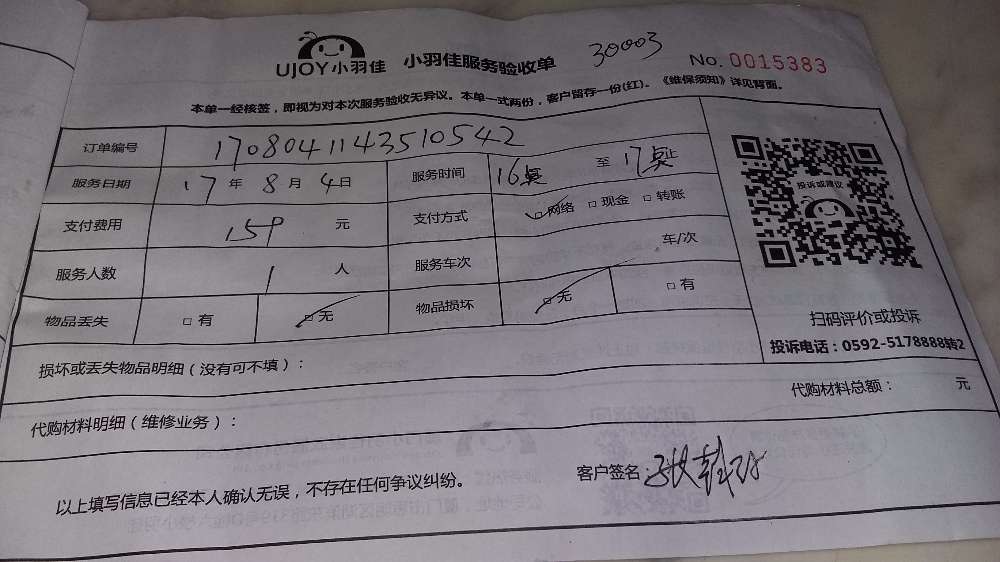 UJOY小羽佳 小羽佳服务验收单 30003 No. 0015383
本单一经核签，即视为对本次服务验收无异议。本单一式两份，客户留存一份(红)。《维保须知》详见背面。
订单编号 170804114351054​2
服务日期 17 年 8 月 4 日 服务时间 16点 至 17点止
支付费用 159 元 支付方式 ☑网络 □现金 □转账
服务人数 1 人 服务车次 车/次
物品丢失 □有 ☑无 物品损坏 ☑无 □有
投诉或建议
扫码评价或投诉
投诉电话：0592-5178888转2
损坏或丢失物品明细（没有可不填）：
代购材料明细（维修业务）： 代购材料总额： 元
以上填写信息已经本人确认无误，不存在任何争议纠纷。 客户签名: